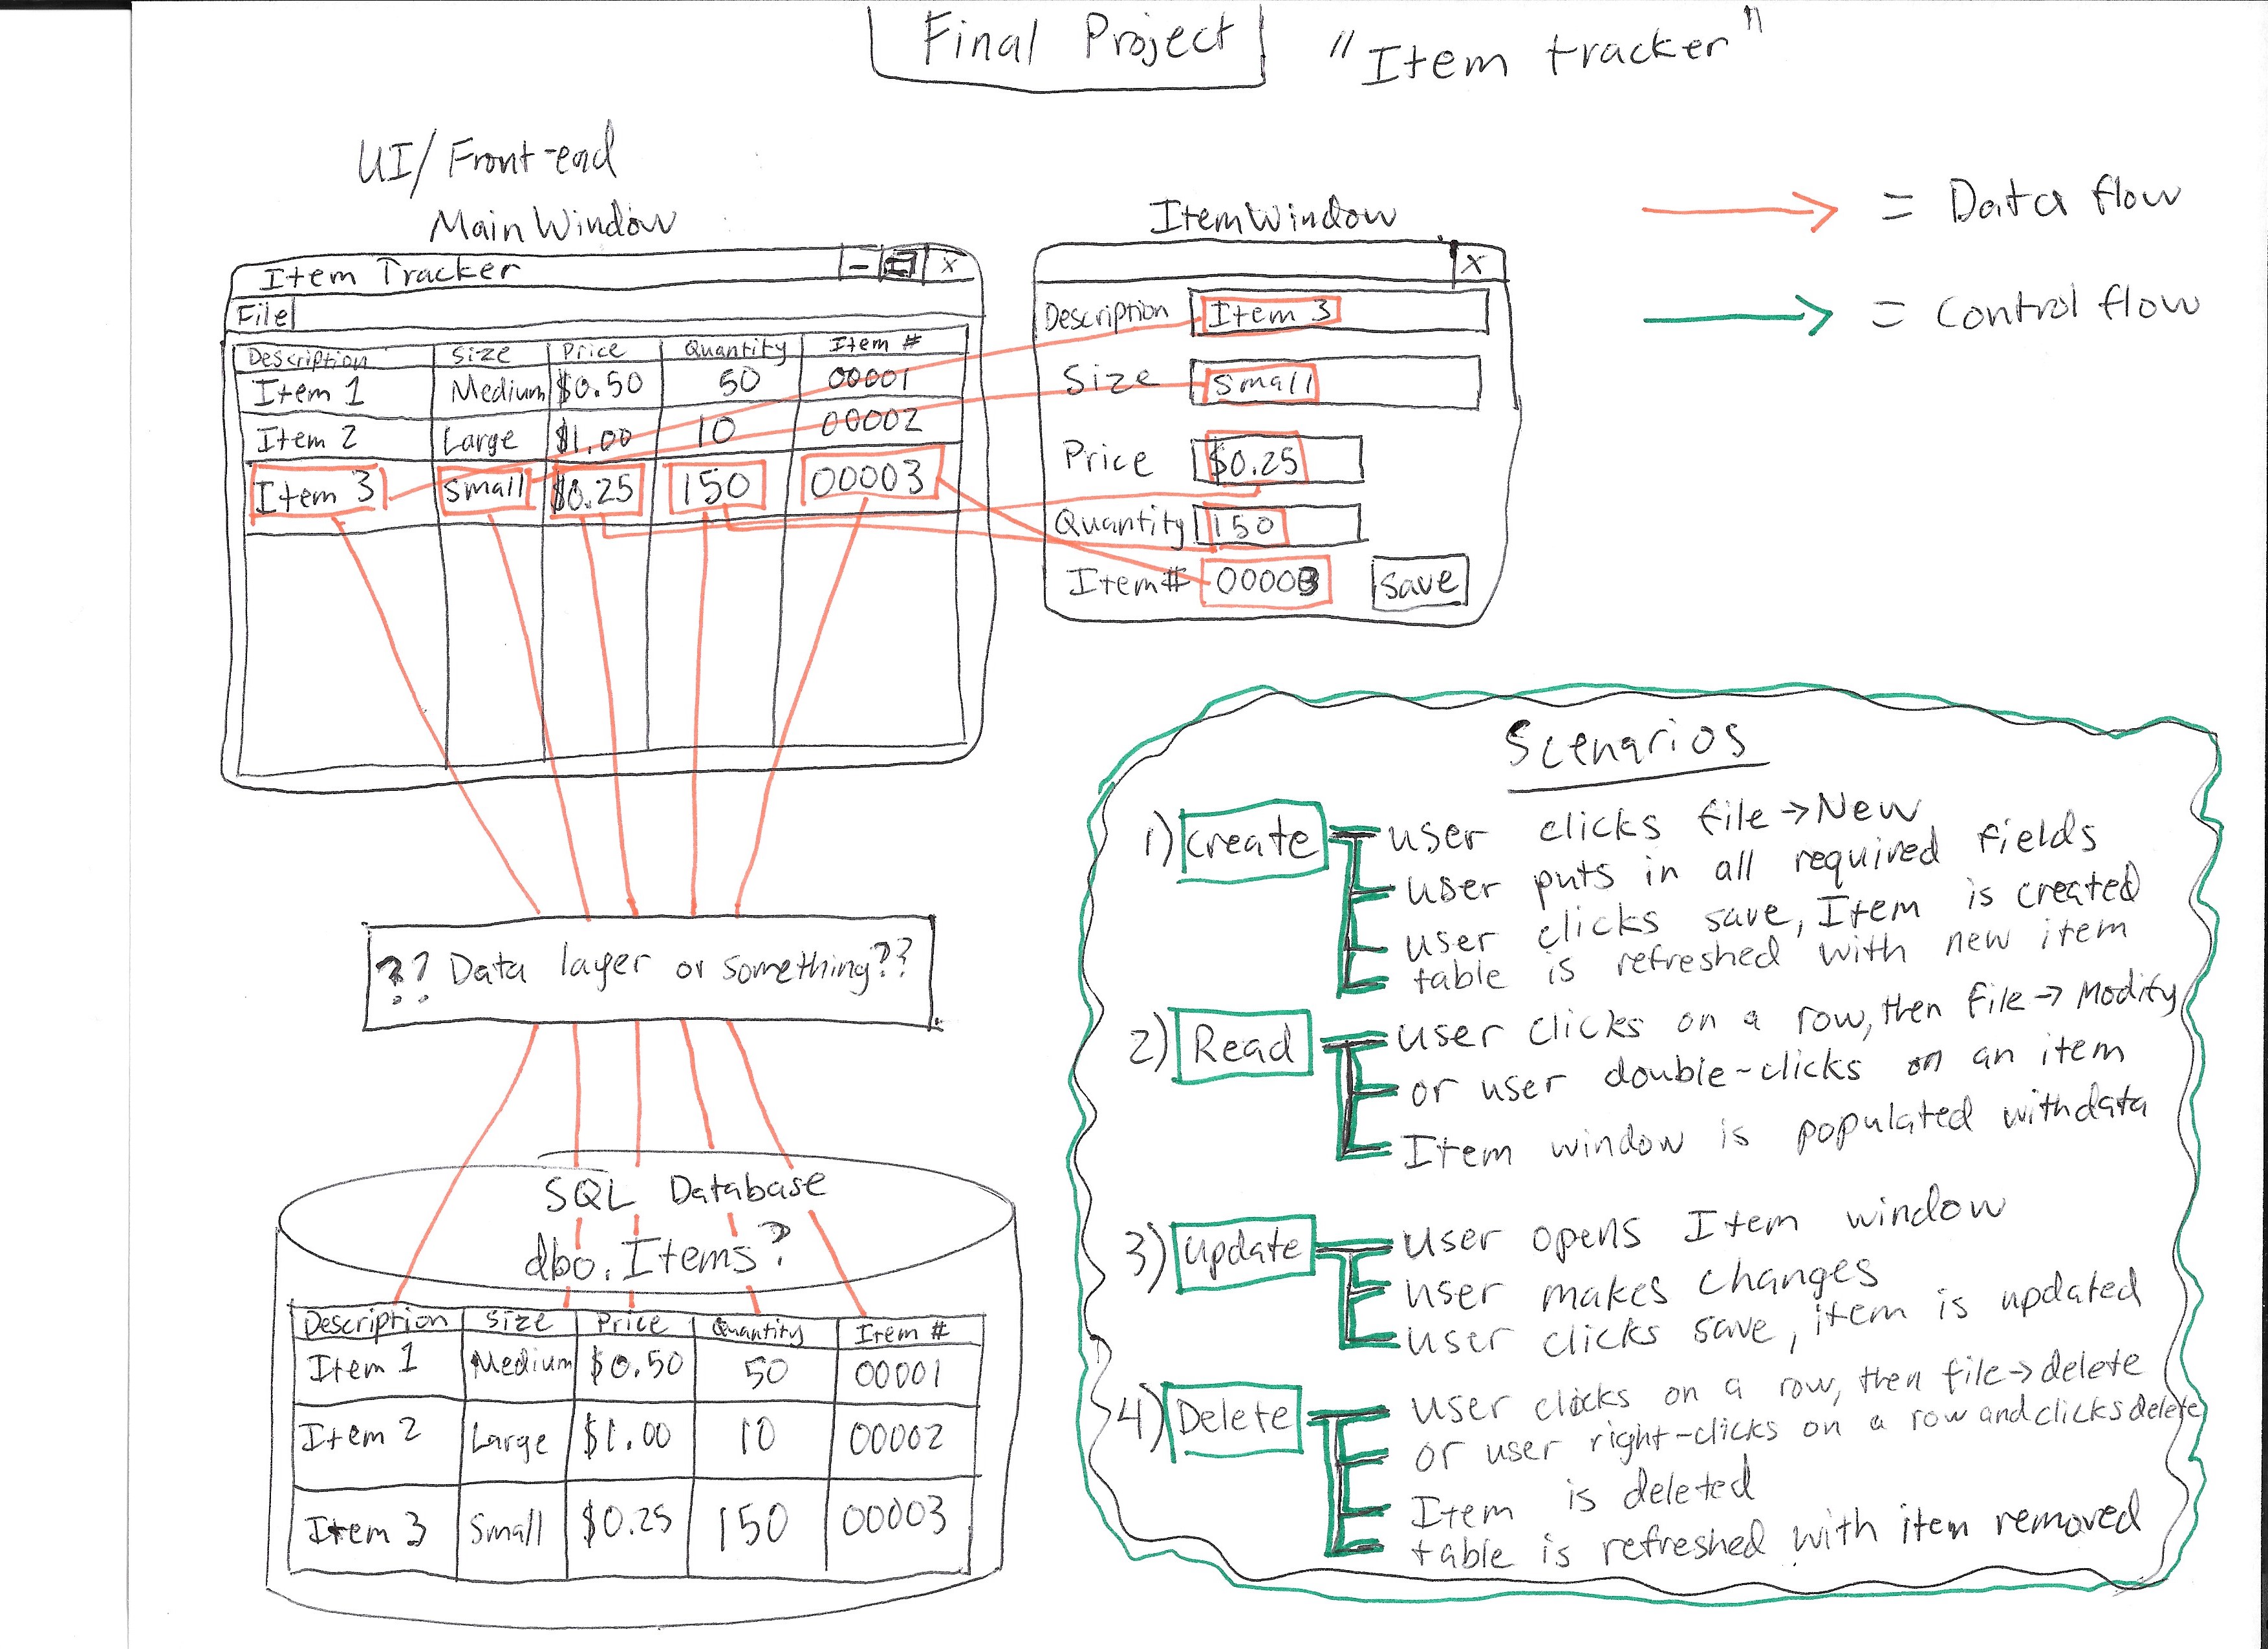 Final Project
"Item tracker"
UI/Front-end
MainWindow
Item Tracker
– X
File
Description Size Price Quantity Item #
Item 1 Medium $0.50 50 00001
Item 2 Large $1.00 10 00002
Item 3 Small $0.25 150 00003
ItemWindow
X
Description Item 3
Size Small
Price $0.25
Quantity 150
Item# 00003 save
= Data flow
= Control flow
?? Data layer or something??
SQL Database
dbo.Items?
Description Size Price Quantity Item #
Item 1 Medium $0.50 50 00001
Item 2 Large $1.00 10 00002
Item 3 Small $0.25 150 00003
Scenarios
1) Create user clicks file→New
user puts in all required fields
user clicks save, Item is created
table is refreshed with new item
2) Read User clicks on a row, then file→Modify
or user double-clicks on an item
Item window is populated with data
3) Update User opens Item window
user makes changes
user clicks save, item is updated
4) Delete User clicks on a row, then file→delete
or user right-clicks on a row and clicks delete
Item is deleted
table is refreshed with item removed